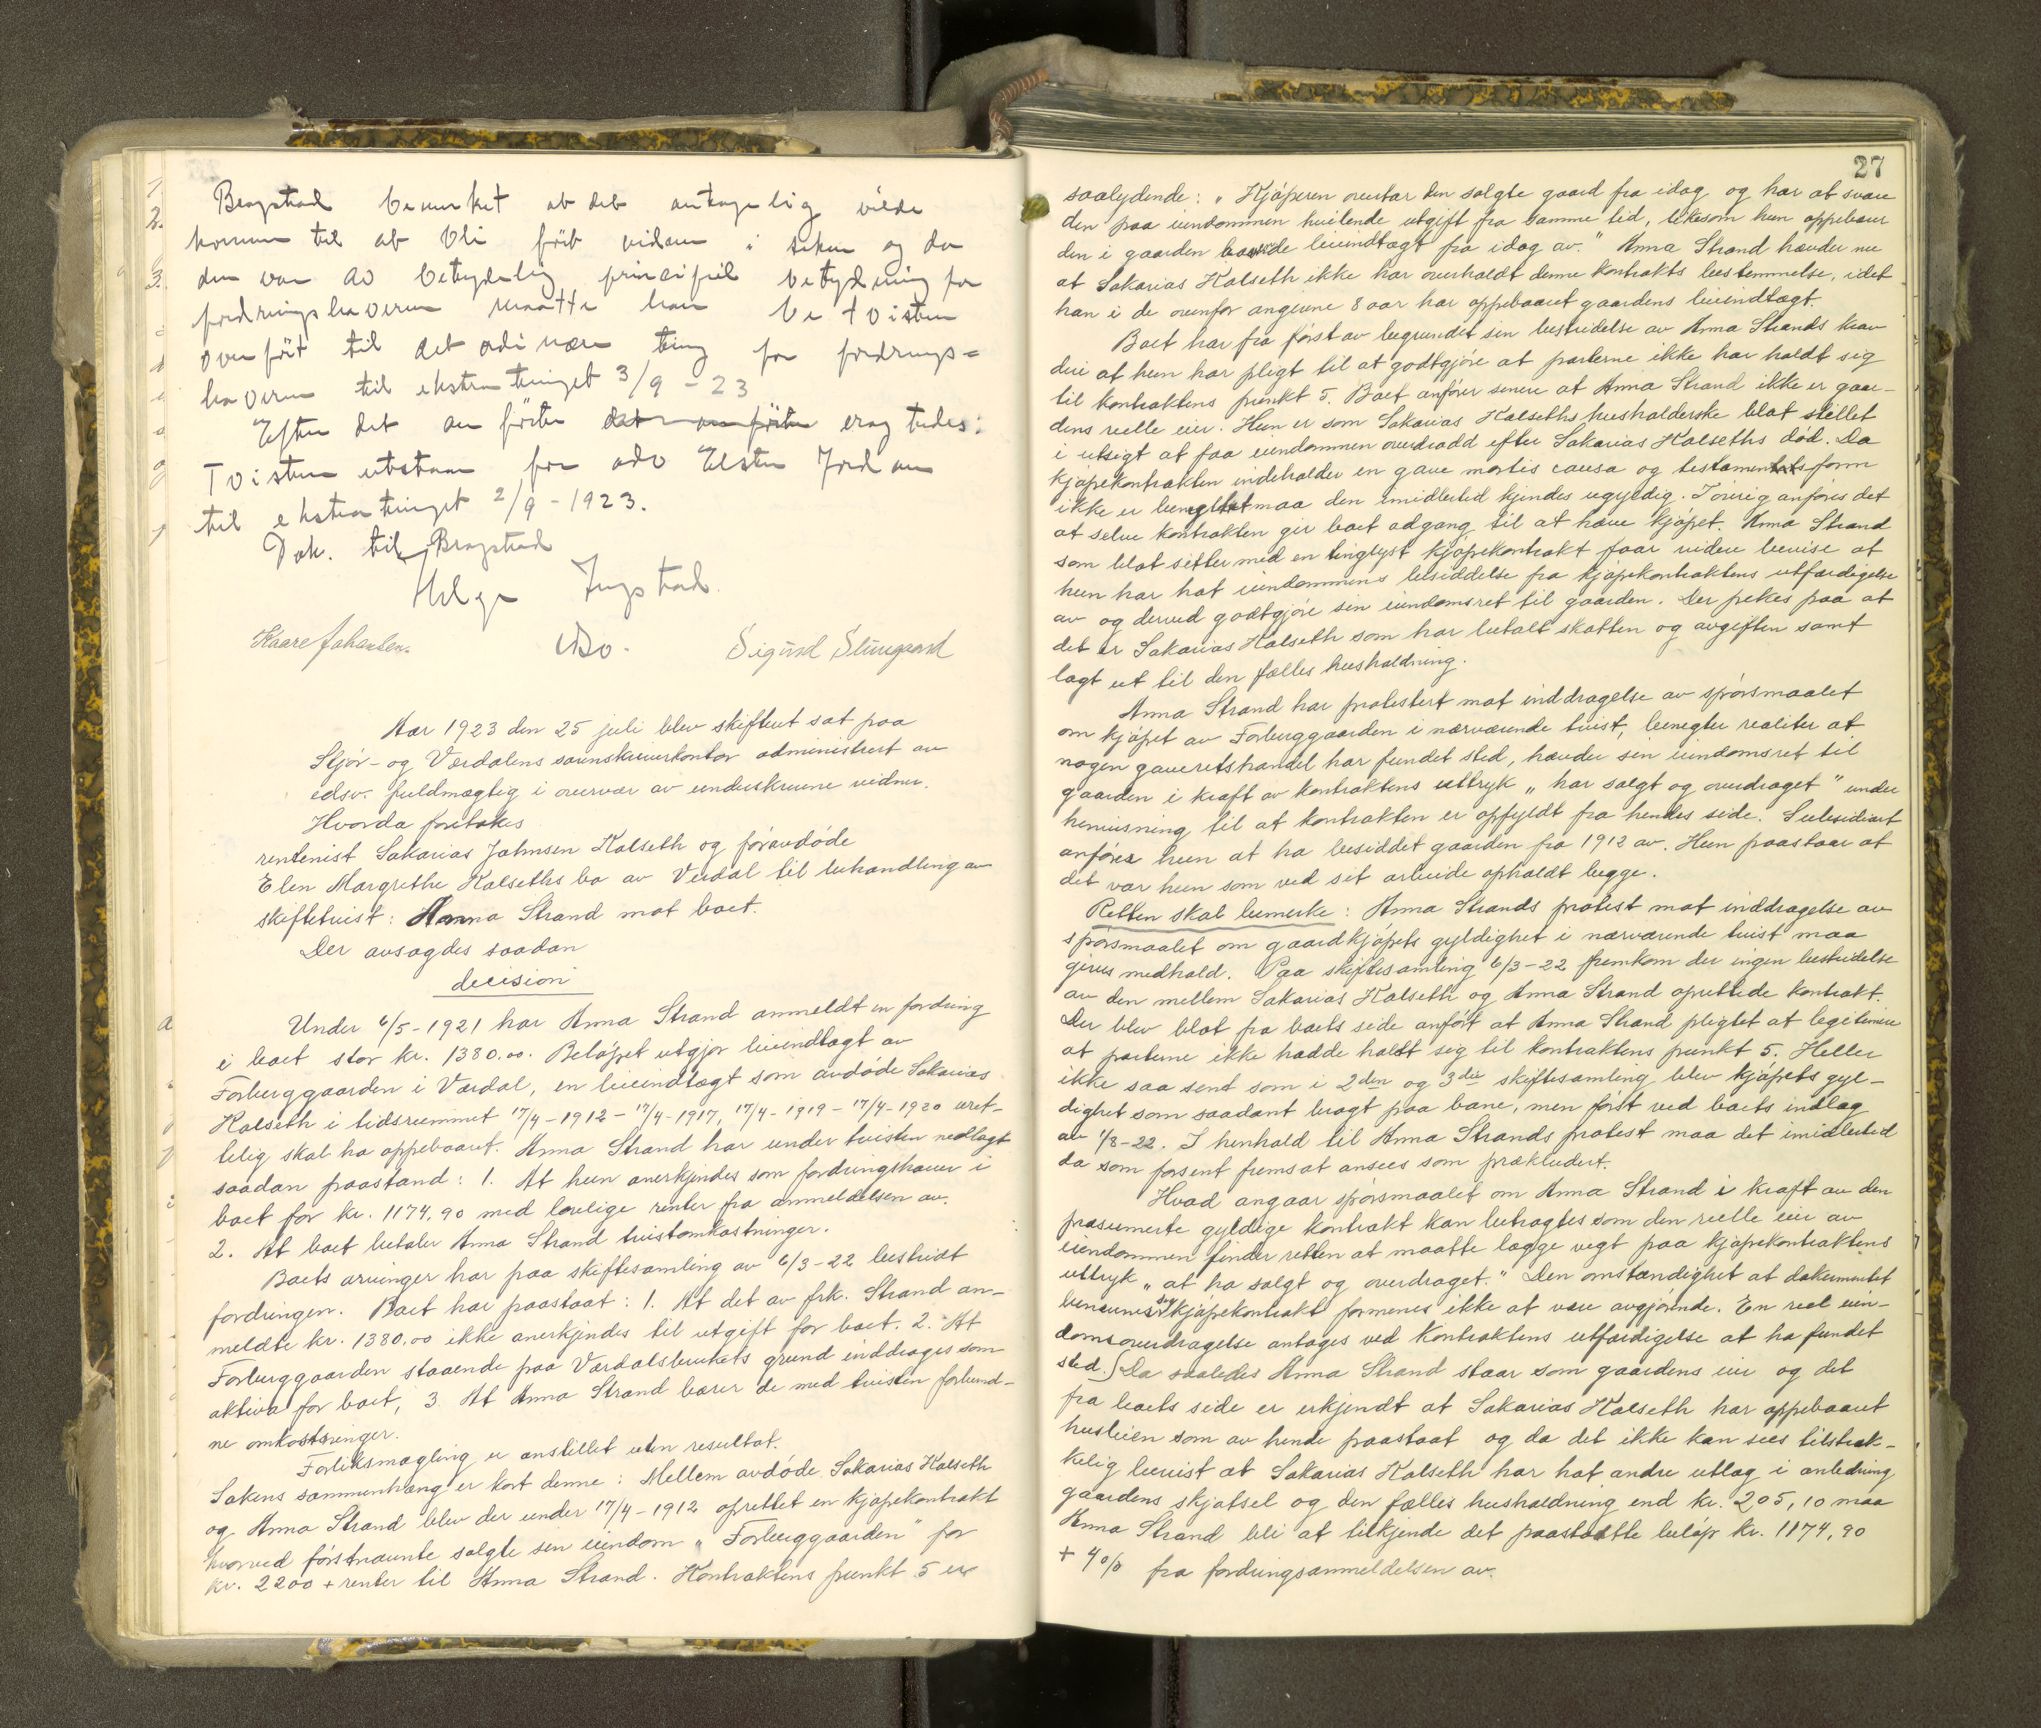 Bragstad bemerket at det antagelig vilde
komme til at bli ført vidner i saken og da
den var av betydelig principiel betydning for
fordringshaveren maatte han be tvisten
overført til det ordinære ting for fordrings=
haveren til ekstratinget 3/9 - 23
Efter det anførte det anførte eragtedes:
Tvisten utstaar for adv Elster Jordan
til ekstratinget 2/9 - 1923.
Dok. til Bragstad
Helge Ingstad.
Kaare Johansen. Sigurd Stuugaard
Aar 1923 den 25 juli blev skifteret sat paa
Stjør- og Værdalens sorenskriverkontor administrert av
edsv. fuldmægtig i overvær av underskrevne vidner.
Hvorda foretokes
rentenist Sakarias Johnsen Kalseth ogføravdøde
Elen Margrethe Kalseths bo av Verdal til behandling av
skiftetvist: Anna Strand mot boet.
Der avsagdes saadan
decision
Under 6/5 - 1921 har Anna Strand anmeldt en fordring
i boet stor kr. 1380.00. Beløpet utgjør leieindtægt av
Forburggaarden i Værdal, en leieindtægt som avdøde Sakarias
Kalseth i tidsrummet 17/4 - 1912 - 17/4 - 1917, 17/4 - 1919 - 17/4 - 1920 uret-
telig skal ha oppebaaret. Anna Strand har under tvisten nedlagt
saadan paastand: 1. At hun anerkjendes som fordringshaver i
boet for kr. 1174,90 med lovlige renter fra anmeldelsen av.
2. At boet betaler Anna Strand tvistomkostninger.
Boets arvinger har paa skiftesamling av 6/3 - 22 bestridt
fordringen. Boet har paastaat: 1. At det av frk. Strand an-
meldte kr. 1380,00 ikke anerkjendes til utgift for boet. 2. At
Forburggaarden staaende paa Værdalsbrukets grund inddrages som
aktiva for boet, 3. At Anna Strand bærer de med tvisten forbund-
ne omkostninger.
Forliksmægling er anstillet uten resultat.
Sakens sammenhæng er kort denne: Mellem avdøde Sakarias Kalseth
og Anna Strand blev der under 17/4 - 1912 oprettet en kjøpekontrakt
hvorved førstnævnte solgte sin eiendom "Forburggaarden" for
kr. 2200 + renter til Anna Strand. Kontraktens punkt 5 er
27
saalydende: "Kjøperen overtar den solgte gaard fra idag og har at svare
den paa eiendommen hvilende utgift fra samme tid, likesom hun oppebærer
den i gaarden værende leieindtægt fra idag av." Anna Strand hævder nu
at Sakarias Kalseth ikke har overholdt denne kontrakts bestemmelse, idet
han i de ovenfor angivne 8 aar har oppebaaret gaardens leieindtægt.
Boet har fra først av begrundet sin bestridelse av Anna Strands krav
deri at hun har pligt til at godtgjøre at parterne ikke har holdt sig
til kontraktens punkt 5. Boet anfører senere at Anna Strand ikke er gaar-
dens reelle eier. Hun er som Sakarias Kalseths husholderske blot stillet
i utsigt at faa eiendommen overdradd efter Sakarias Kalseths død. Da
kjøpekontrakten indeholder en gave mortis causa og testamentsform
ikke er benyttet maa den imidlertid kjendes ugyldig. I øvrig anføres det
at selve kontrakten gir boet adgang til at hæve kjøpet. Anna Strand
som blot sitter med en tinglyst kjøpekontrakt faar videre bevise at
hun har hat eiendommens besiddelse fra kjøpekontraktens utfærdigelse
av og derved godtgjøre sin eiendomsret til gaarden. Der pekes paa at
det er Sakarias Kalseth som har betalt skatten og avgiften samt
lagt ut til den fælles husholdning.
Anna Strand har protestert mot inddragelse av spørsmaalet
om kjøpet av Forburggaarden i nærværende tvist, benegter realiter at
nogen gaveretshandel har fundet sted, hævder sin eiendomsret til
gaarden i kraft av kontraktens uttryk "har solgt og overdraget" under
henvisning til at kontrakten er opfyldt fra hendes side. Subsidiært
anføres hun at ha besiddet gaarden fra 1912 av. Hun paastaar at
det var hun som ved sit arbeide opholdt begge.
Retten skal bemerke: Anna Strands protest mot inddragelse av
spørsmaalet om gaardkjøpets gyldighet i nærværende tvist maa
gives medhold. Paa skiftesamling 6/3 - 22 fremkom der ingen bestridelse
av den mellem Sakarias Kalseth og Anna Strand oprettede kontrakt.
Der blev blot fra boets side anført at Anna Strand pligtet at legitimere
at parterne ikke hadde holdt sig til kontraktens punkt 5. Heller
ikke saa sent som i 2den og 3die skiftesamling blev kjøpets gyl-
dighet som saadant bragt paa bane, men først ved boets indlæg
av 1/8 - 22. I henhold til Anna Strands protest maa det imidlertid
da som forsent fremsat ansees som prækludert.
Hvad angaar spørsmaalet om Anna Strand i kraft av den
præsumerte gyldige kontrakt kan betragtes som den reelle eier av
eiendommen finder retten at maatte lægge vegt paa kjøpekontraktens
uttryk "at ha solgt og overdraget." Den omstændighet at dokumentet
benævnes kjøpekontrakt formenes ikke at være avgjørende. En reel eien-
domsoverdragelse antages ved kontraktens utfærdigelse at ha fundet
sted. Da saaledes Anna Strand staar som gaardens eier og det
fra boets side er erkjendt at Sakarias Kalseth har oppebaaret
husleien som av hende paastaat og da det ikke kan sees tilstræk-
kelig bevist at Sakarias Kalseth har hat andre utlæg i anledning
gaardens skjøtsel og den fælles husholdning end kr. 205,10 maa
Anna Strand bli at tilkjende det paastaatte beløp kr. 1174,90
+ 4% fra fordringsanmeldelsen av.